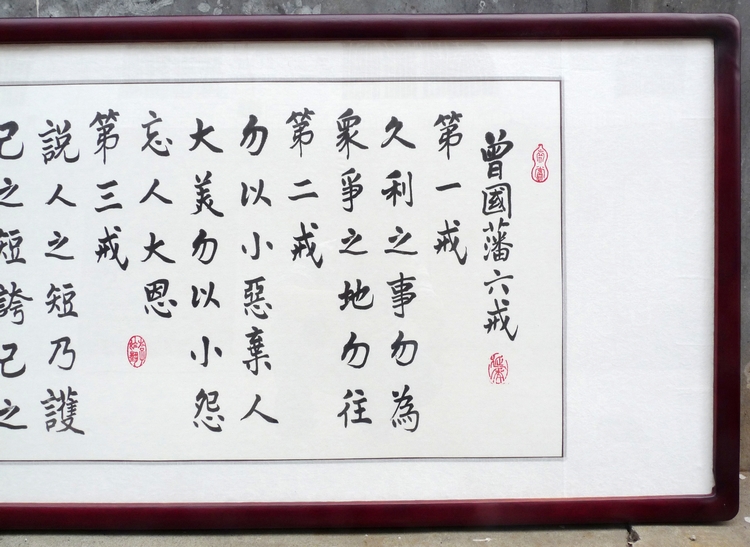 曾國藩六戒
第一戒
久利之事勿為
衆爭之地勿往
第二戒
勿以小惡棄人
大美勿以小怨
忘人大恩
第三戒
説人之短乃護
己之短誇己之